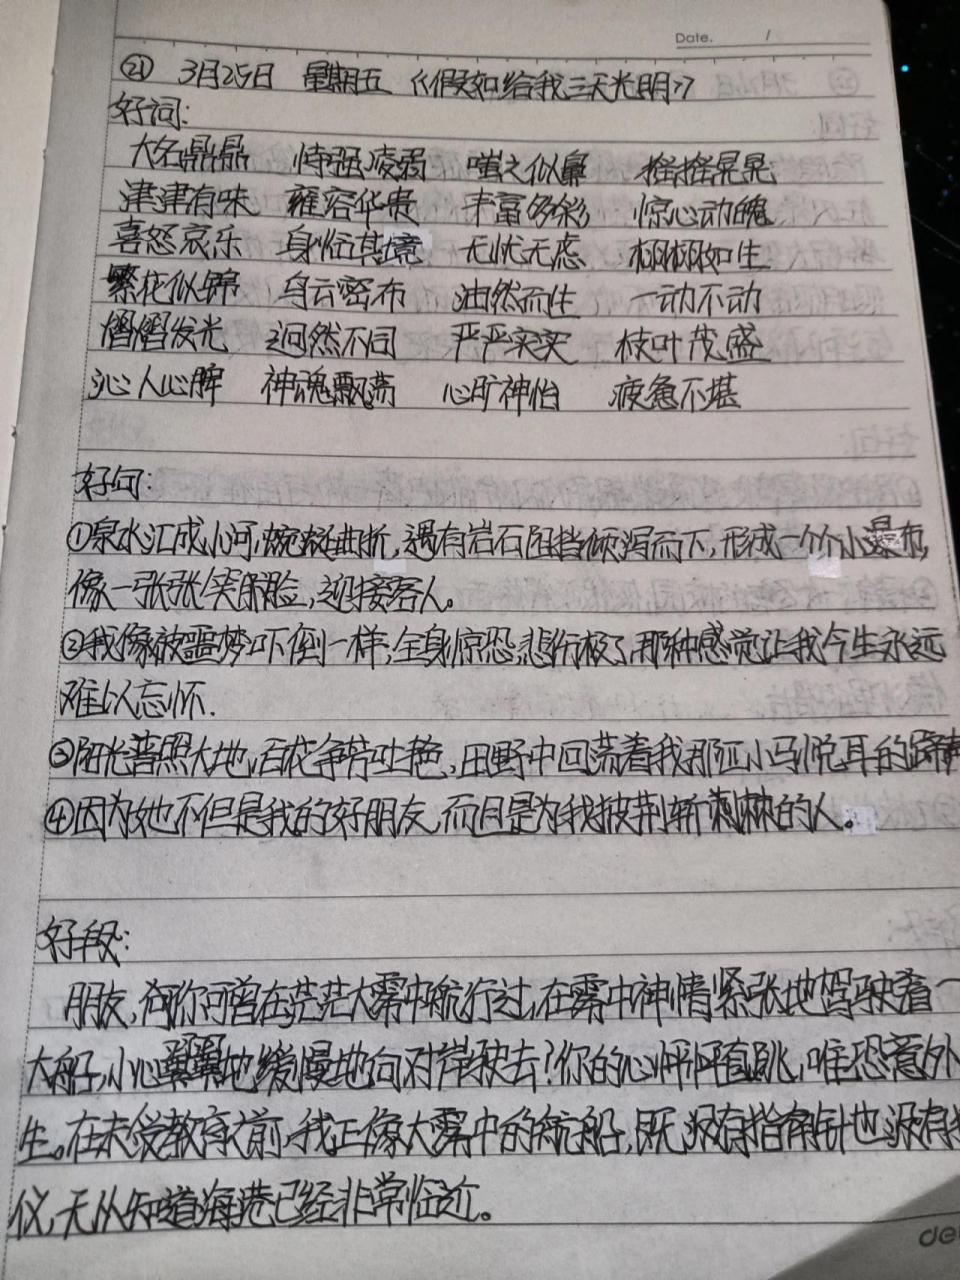 Date. /
㉑ 3月25日 星期五 《假如给我三天光明》
好词:
大名鼎鼎 恃强凌弱 嗤之似鼻 摇摇晃晃
津津有味 雍容华贵 丰富多彩 惊心动魄
喜怒哀乐 身临其境 无忧无虑 栩栩如生
繁花似锦 乌云密布 油然而生 一动不动
熠熠发光 迥然不同 严严实实 枝叶茂盛
沁人心脾 神魂飘荡 心旷神怡 疲惫不堪
好句:
①泉水汇成小河,蜿蜒曲折,遇有岩石阻挡倾泻而下,形成一个个小瀑布,
像一张张笑脸,迎接客人。
②我像被噩梦吓倒一样,全身惊恐,悲伤极了,那种感觉让我今生永远
难以忘怀.
③阳光普照大地,百花争芳吐艳,田野中回荡着我那匹小马悦耳的蹄声
④因为她不但是我的好朋友,而且是为我披荆斩棘的人。
好段:
朋友,问你可曾在茫茫大雾中航行过,在雾中神情紧张地驾驶着一
大船,小心翼翼地缓慢地向对岸驶去?你的心怦怦直跳,唯恐意外
生。在未受教育之前,我正像大雾中的航船,既没有指南针也没有
仪,无从知道海港已经非常临近。